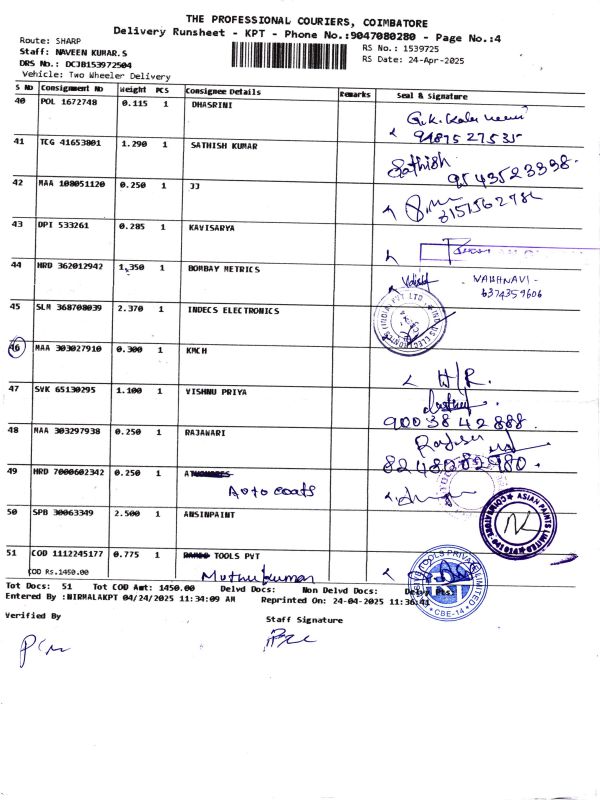 THE PROFESSIONAL COURIERS, COIMBATORE
Delivery Runsheet - KPT - Phone No.:9047080280 - Page No.:4
Route: SHARP
RS No.: 1539725
Staff: NAVEEN KUMAR.S
RS Date: 24-Apr-2025
DRS No.: DCJB1539725O4
Vehicle: Two Wheeler Delivery
S No Consignment No Weight PCS Consignee Details Remarks Seal & Signature
40 POL 1672748 0.115 1 DHASRINI
9487527535
41 TCG 41653801 1.290 1 SATHISH KUMAR
Sathish
9543523338
42 MAA 108051120 0.250 1 JJ
43 DPI 533261 0.285 1 KAVISARYA
44 HRD 362012942 1.350 1 BOMBAY METRICS
VAISHNAVI -
6374359606
45 SLM 368708039 2.370 1 INDECS ELECTRONICS
46 MAA 303027910 0.300 1 KMCH
H/R.
47 SVK 65130295 1.100 1 VISHNU PRIYA
90038 42888
48 MAA 303297938 0.250 1 RAJAWARI
8248202980
49 HRD 7000602342 0.250 1
Auto coats
50 SPB 30063349 2.500 1 ANSINPAINT
ASIAN PAINTS LIMITED
51 COD 1112245177 0.775 1 TOOLS PVT
COD Rs.1450.00
Muthukumar
TOOLS PRIVATE LIMITED
CBE-14
Tot Docs: 51 Tot COD Amt: 1450.00 Delvd Docs: Non Delvd Docs: Delvy Pct:
Entered By :NIRMALAKPT 04/24/2025 11:34:09 AM Reprinted On: 24-04-2025 11:36:41
Verified By
Staff Signature